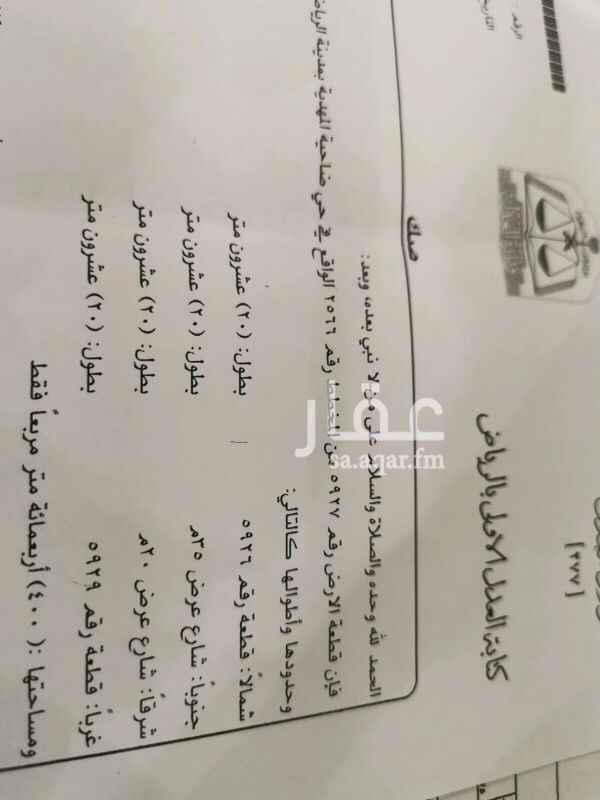 الرقم:
التاريخ
[٢٧٧]
كتابة العدل الأولى بالرياض
صك
الحمد لله وحده والصلاة والسلام على من لا نبي بعده، وبعد:
فإن قطعة الارض رقم ٥٩٢٧ من المخطط رقم ٢٥٦٦ الواقع في حي ضاحية المهدية بمدينة الرياض
وحدودها وأطوالها كالتالي:
شمالاً: قطعة رقم ٥٩٢٦ بطول: (٢٠) عشرون متر
جنوباً: شارع عرض ٣٥م بطول: (٢٠) عشرون متر
شرقاً: شارع عرض ٢٠م بطول: (٢٠) عشرون متر
غرباً: قطعة رقم ٥٩٢٩ بطول: (٢٠) عشرون متر
ومساحتها: (٤٠٠) أربعمائة متر مربعاً فقط
عقار
sa.aqar.fm